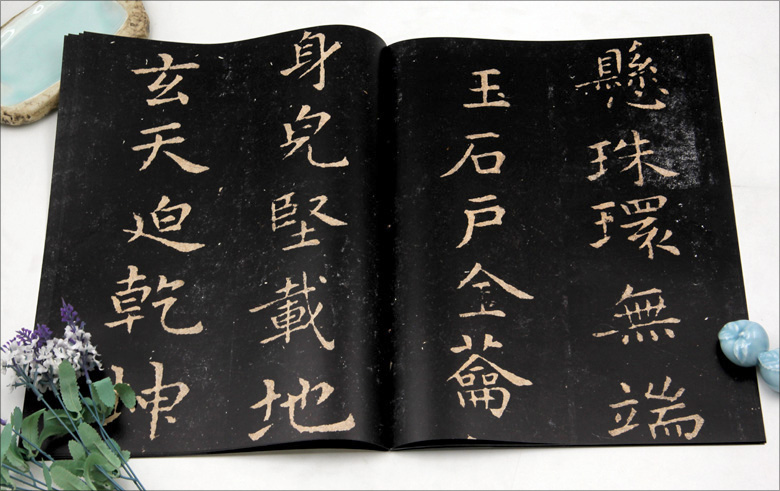 懸珠環無端
玉石戶金蘥
身兒堅載地
玄天迫乾坤